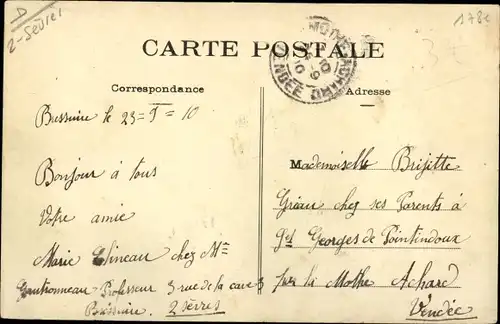 D
2-Sèvres
178e
3€
CARTE POSTALE
MOTHE-ACHARD
VENDÉE
Correspondance
Adresse
Bressuire le 23= =10
Bonjour à tous
Votre amie
Marie chez Mme
Professeur 3 rue de la cave 3
Bressuire. 2 Sèvres
Mademoiselle Brijitte
chez ses Parents à
St Georges de Pointindoux
par la Mothe Achard
Vendée